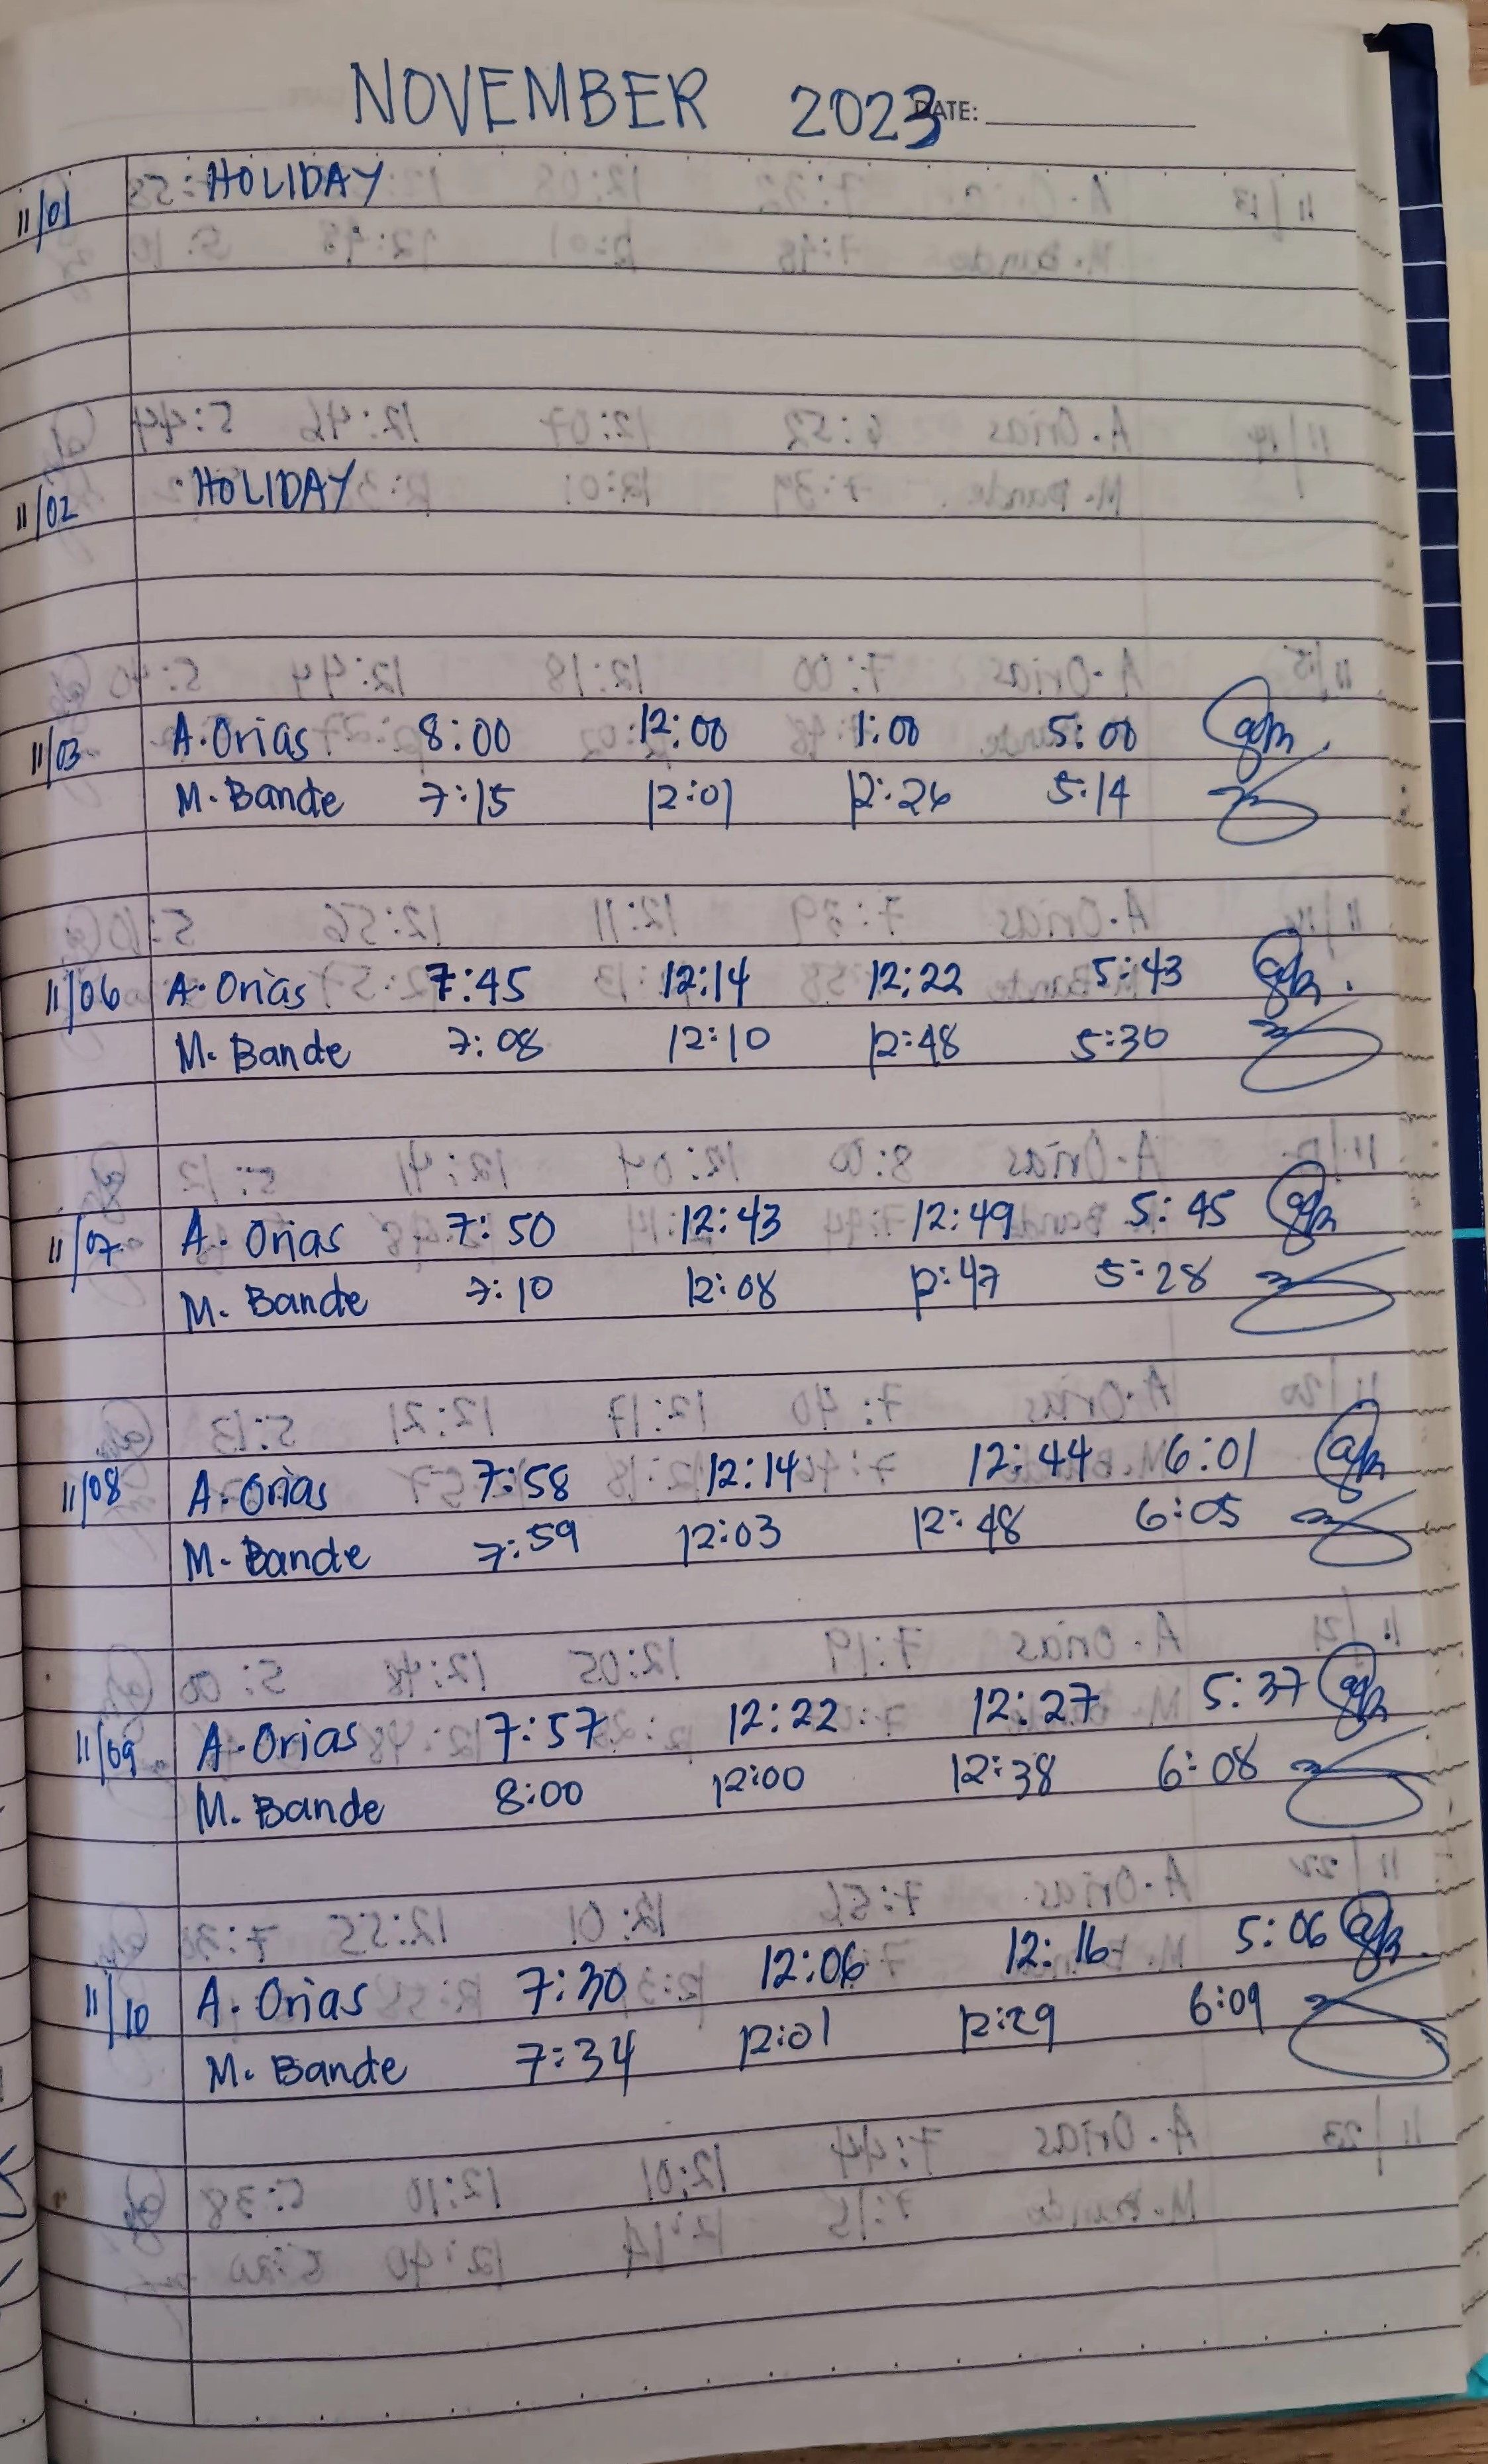 NOVEMBER 2023
DATE:
11/01 HOLIDAY
11/02 HOLIDAY
11/03 A. Orias 8:00 12:00 1:00 5:00
M. Bande 7:15 12:01 12:26 5:14
11/06 A. Orias 7:45 12:14 12:22 5:43
M. Bande 7:08 12:10 12:48 5:30
11/07 A. Orias 7:50 12:43 12:49 5:45
M. Bande 7:10 12:08 12:47 5:28
11/08 A. Orias 7:58 12:14 12:44 6:01
M. Bande 7:59 12:03 12:48 6:05
11/09 A. Orias 7:57 12:22 12:27 5:37
M. Bande 8:00 12:00 12:38 6:08
11/10 A. Orias 7:30 12:06 12:16 5:06
M. Bande 7:34 12:01 12:29 6:09